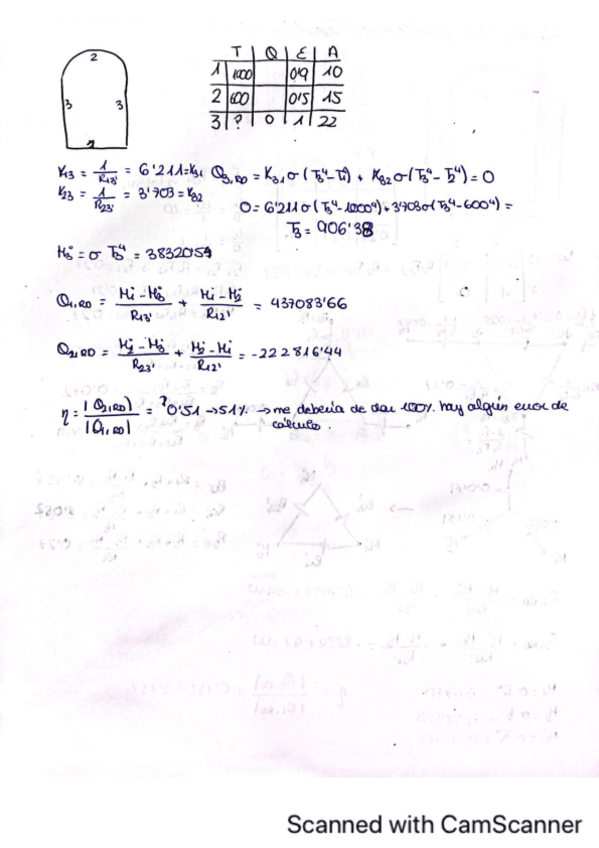 2
3 3
1
T Q ε A
1 1000 0'9 10
2 600 0'5 15
3 ? 0 1 22
K13 = 1/R13' = 6'211 = K31 Q3,RD = K31 σ (T3⁴ - T1⁴) + K32 σ (T3⁴ - T2⁴) = 0
K23 = 1/R23' = 3'703 = K32
0 = 6'211 σ (T3⁴ - 1000⁴) + 3'703 σ (T3⁴ - 600⁴) =
T3 = 906'38
H3° = σ T3⁴ = 38320'59
Q1,RD = (H1° - H3°)/R13' + (H1° - H2°)/R12' = 437083'66
Q2,RD = (H2° - H3°)/R23' + (H2° - H1°)/R12' = -222816'44
η = |Q2,RD|/|Q1,RD| = ?0'51 → 51% → me deberia de dar 100%. hay algún error de
cálculo.
Scanned with CamScanner